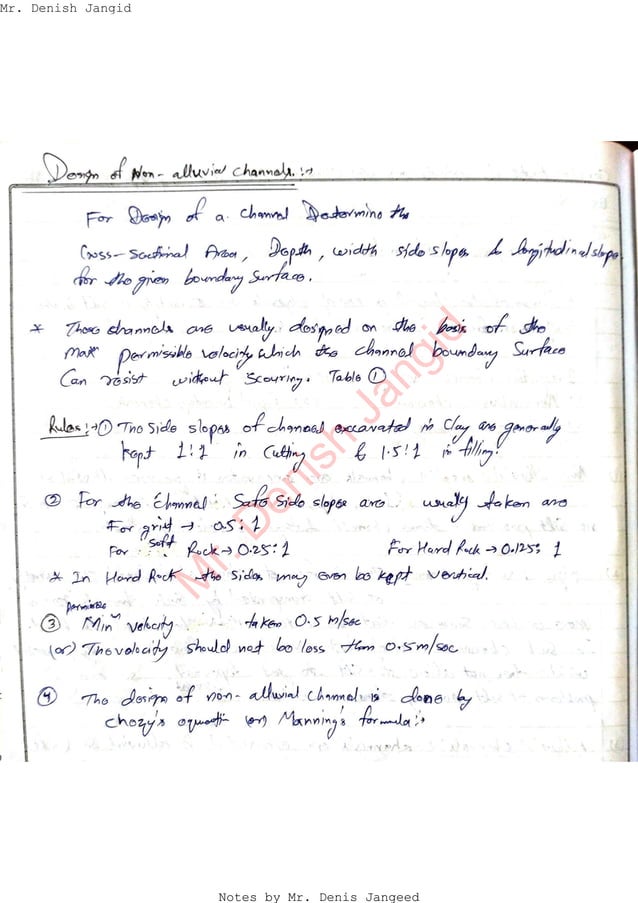 Mr. Denish Jangid
Design of Non-alluvial Channels:→
For Design of a Channel Determine the
Cross-Sectional Area, Depth, width side slopes & longitudinal slope
for the given boundary surface.
* These channels are usually designed on the basis of the
max^m permissible velocity which the channel boundary Surface
Can resist without scouring. Table ①
Rules:→ ① The side slopes of channel excavated in Clay are generally
kept 1:1 in Cutting & 1.5:1 in filling.
② For the Channel: Safe side slopes are usually taken are
For grit → 0.5:1
For soft Rock → 0.25:1 For Hard Rock → 0.125:1
* In Hard Rock the sides may even be kept vertical.
③ Min^m permissible velocity taken 0.5 m/sec
(or) The velocity should not be less than 0.5m/sec
④ The design of non-alluvial channel is done by
chezy's equati- (or) Manning's formula:→
Mr. Denish Jangid
Notes by Mr. Denis Jangeed